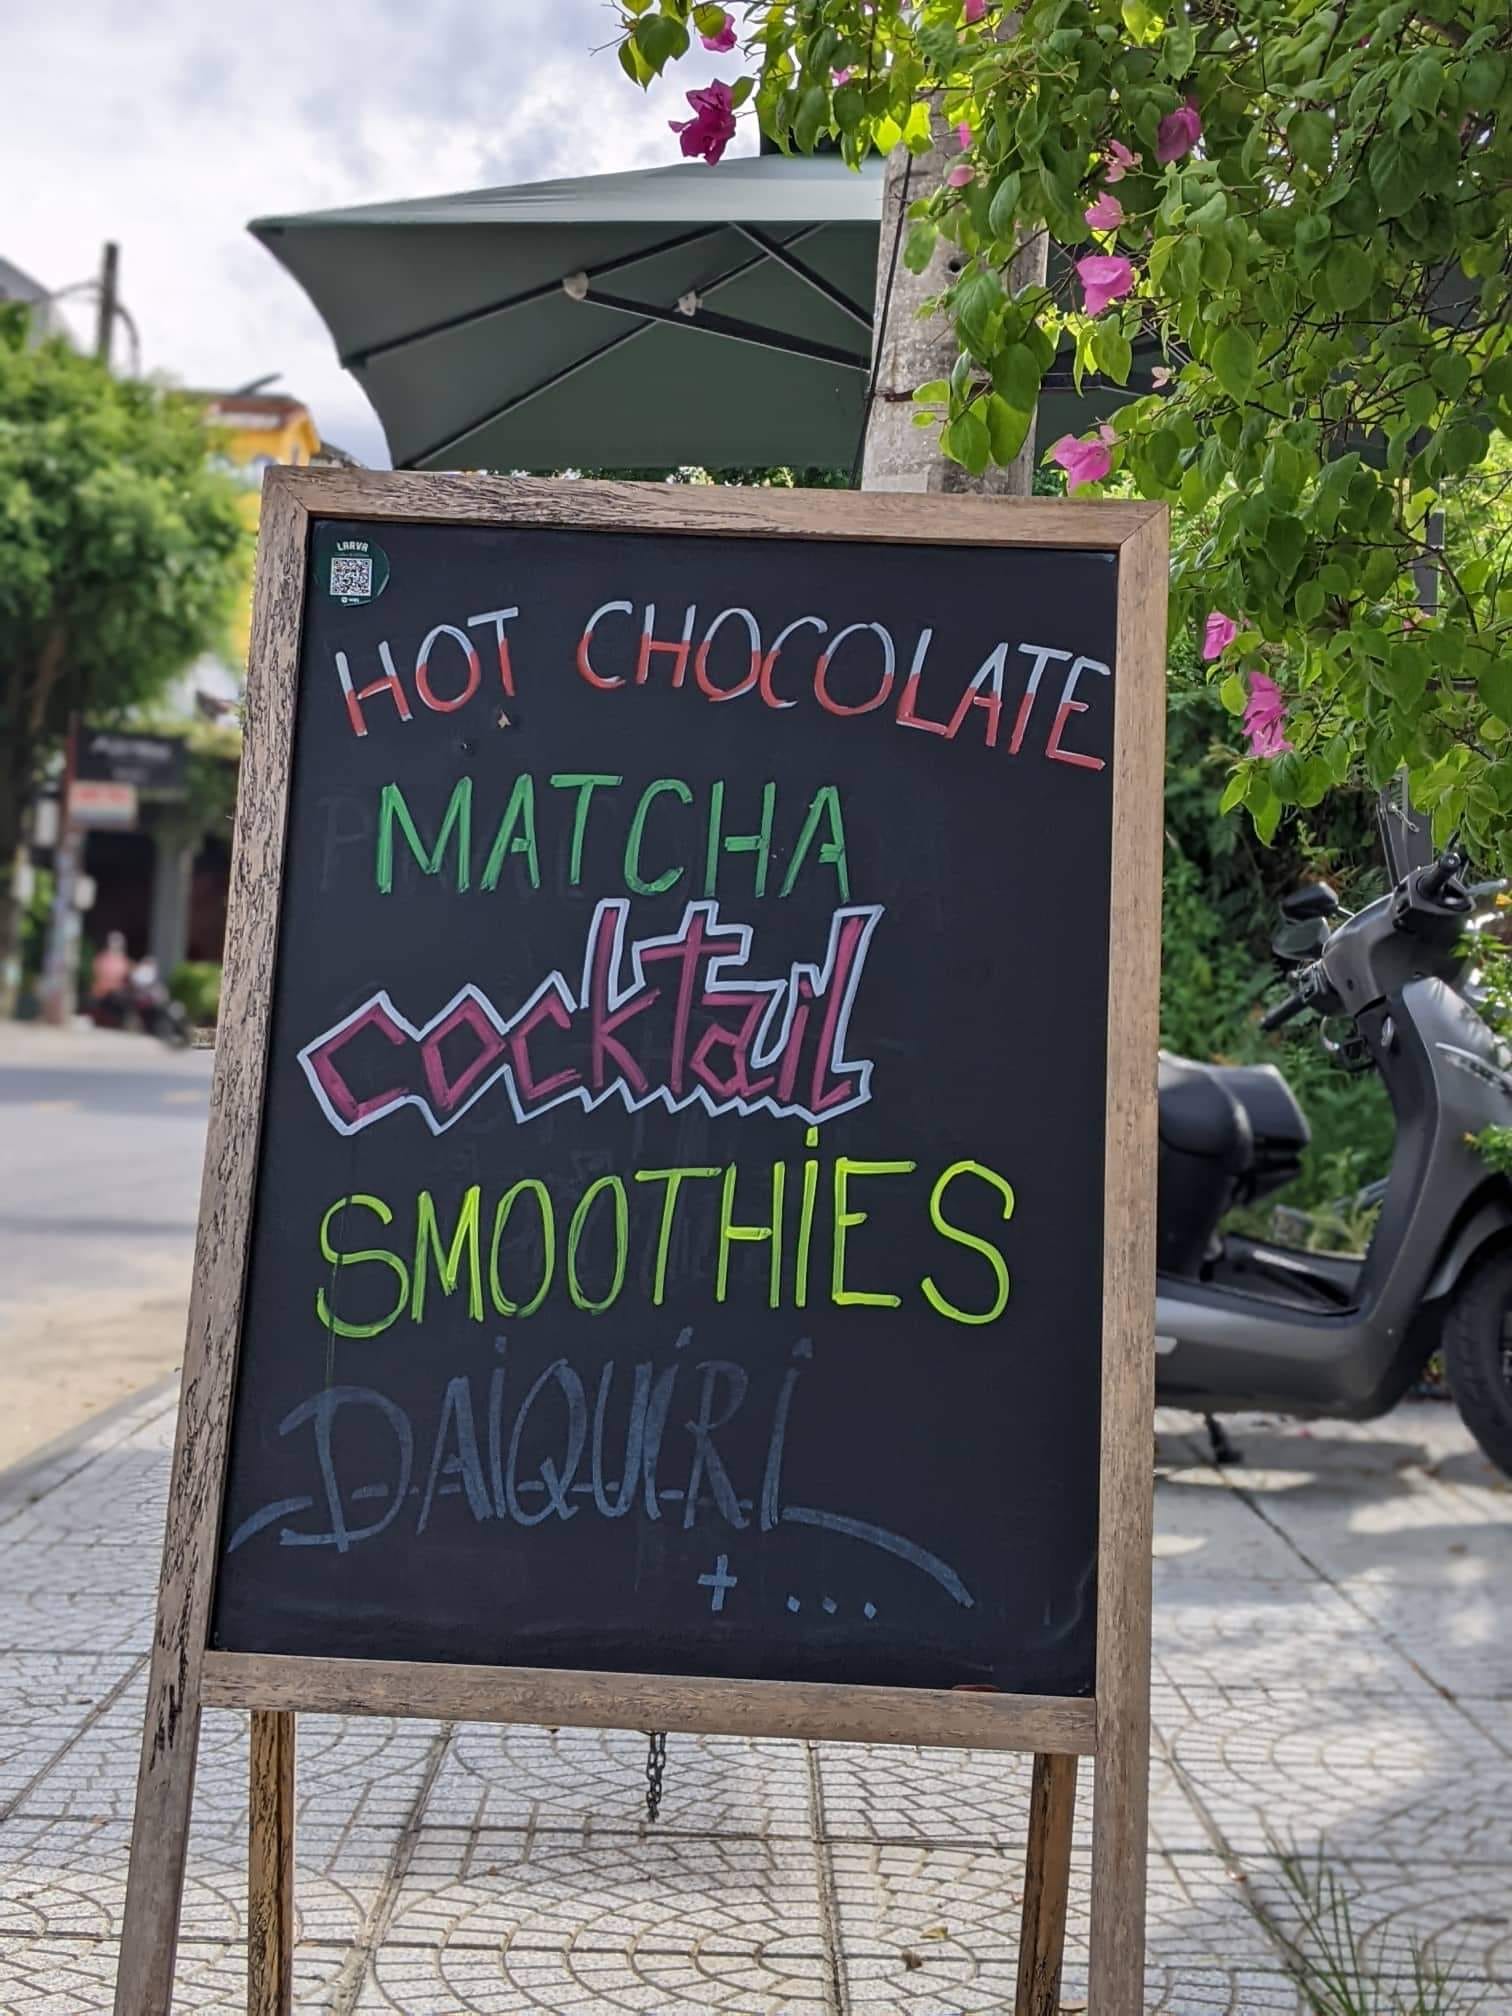 LARVA
HOT CHOCOLATE
MATCHA
cocktail
SMOOTHiES
DAiQUiRi
+ ...